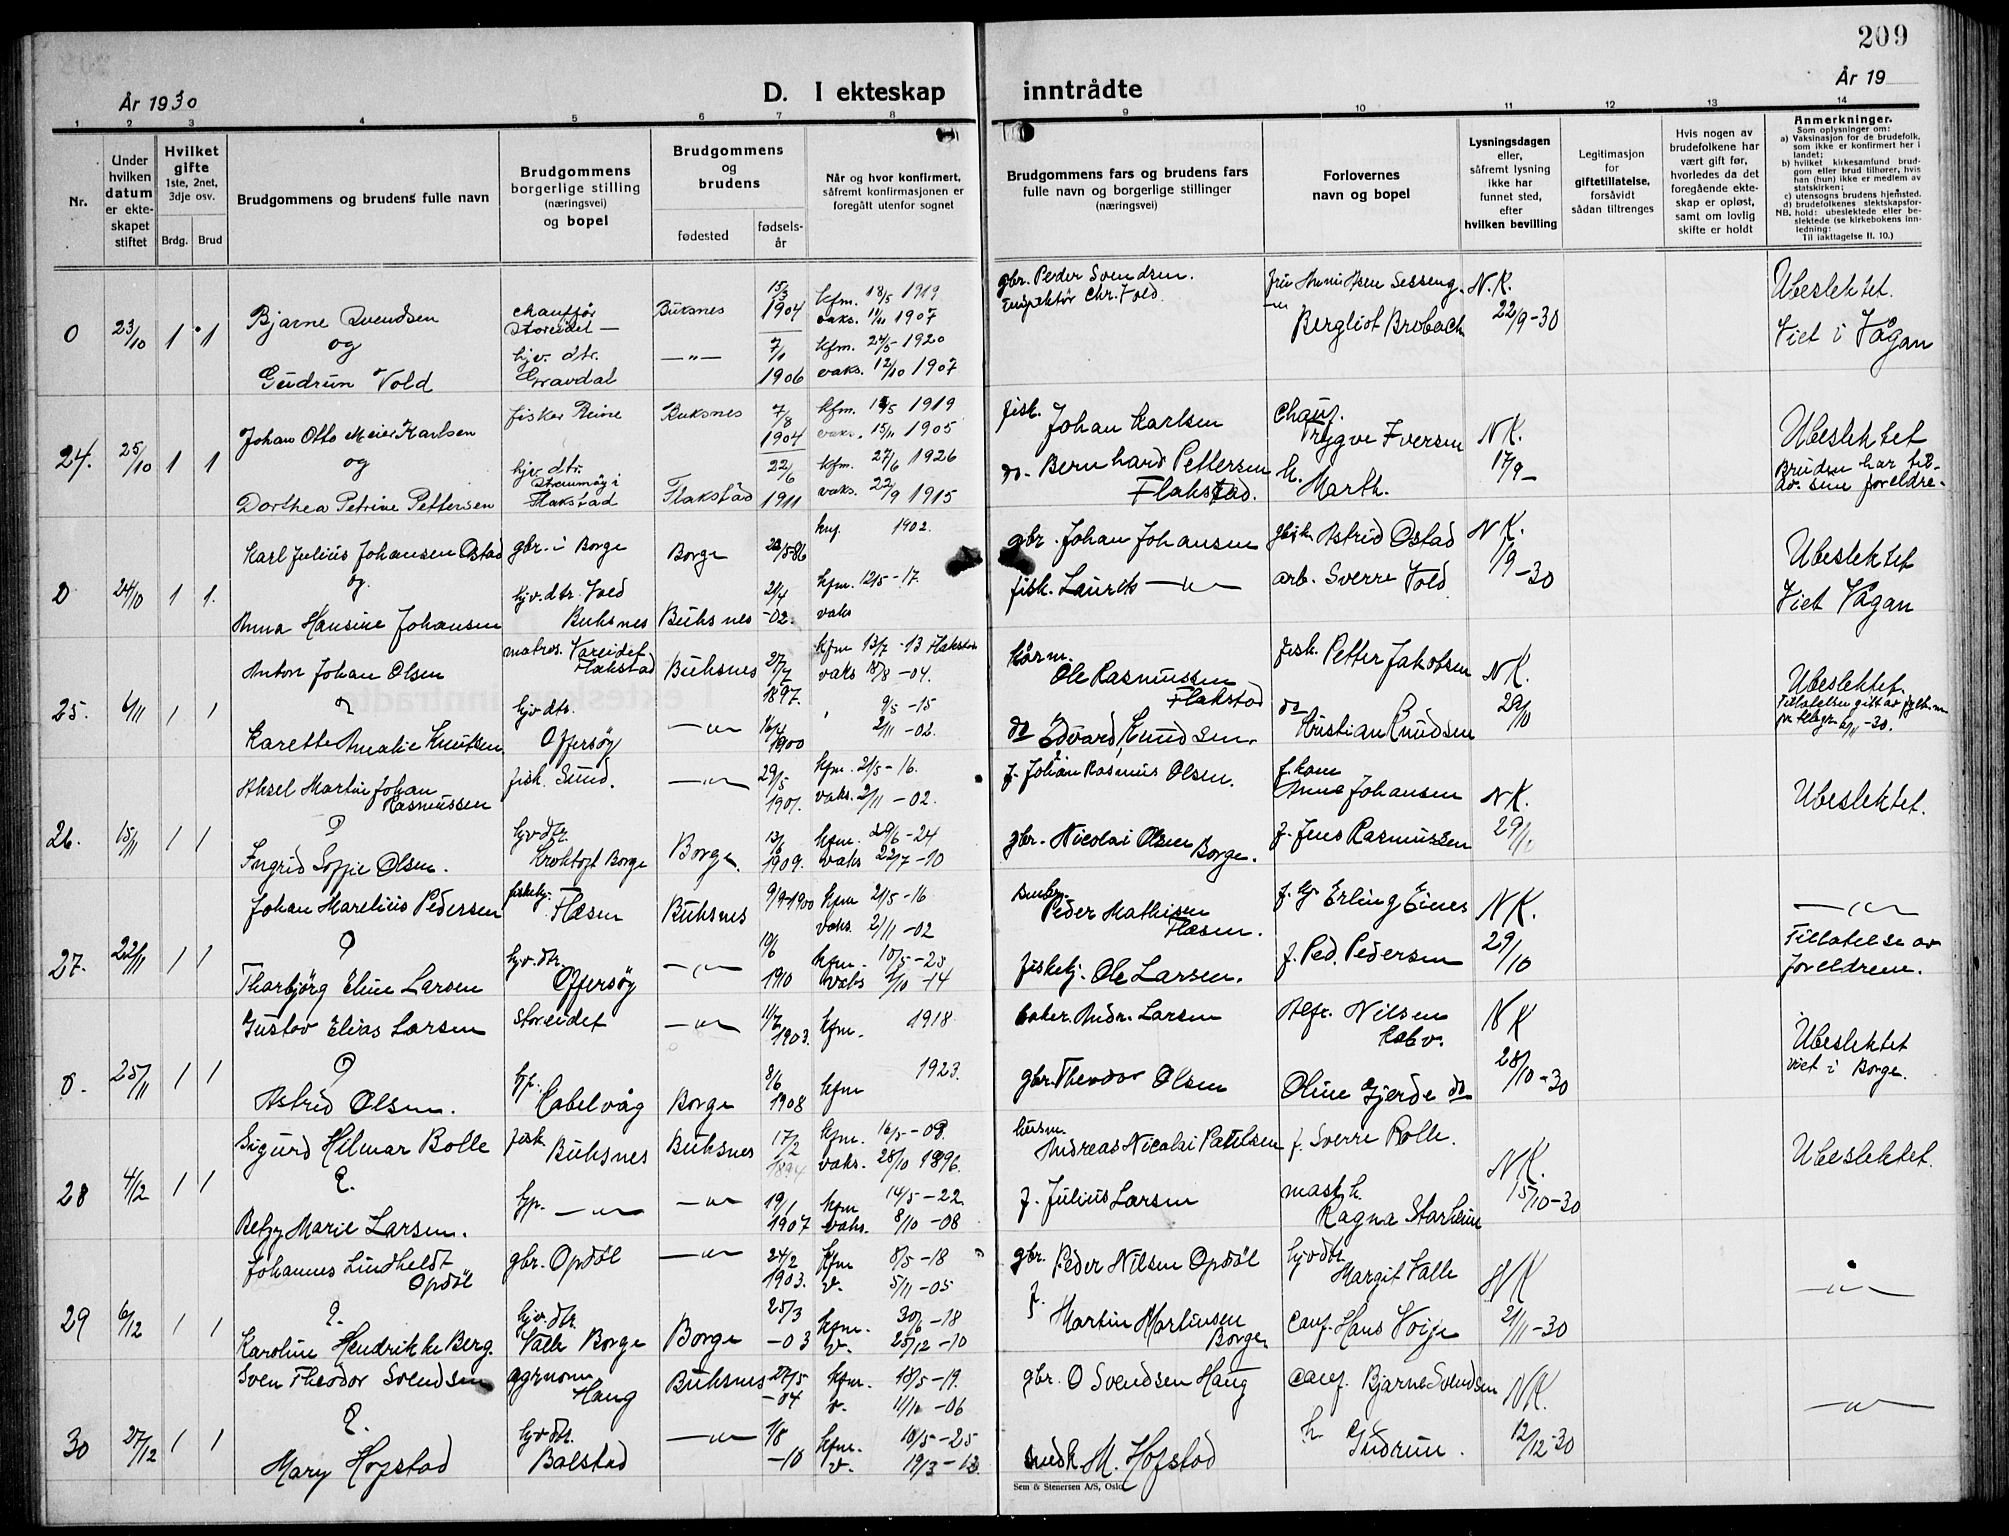 209
År 1930
D. I ekteskap
inntrådte
År 19
1 2 3 4 5 6 7 8 9 10 11 12 13 14
Nr.
Under hvilken datum er ekteskapet stiftet
Hvilket gifte
1ste, 2net, 3dje osv.
Brdg. Brud
Brudgommens og brudens fulle navn
Brudgommens borgerlige stilling (næringsvei) og bopel
Brudgommens og brudens
fødested
fødselsår
Når og hvor konfirmert, såfremt konfirmasjonen er foregått utenfor sognet
Brudgommens fars og brudens fars fulle navn og borgerlige stillinger (næringsvei)
Forlovernes navn og bopel
Lysningsdagen eller, såfremt lysning ikke har funnet sted, efter hvilken bevilling
Legitimasjon for giftetillatelse, forsåvidt sådan tiltrenges
Hvis nogen av brudefolkene har vært gift før, hvorledes da det foregående ekteskap er opløst, samt om lovlig skifte er holdt
Anmerkninger.
Som oplysninger om:
a) Vaksinasjon for de brudefolk, som ikke er konfirmert her i landet;
b) hvilket kirkesamfund brudgom eller brud tilhører, hvis han (hun) ikke er medlem av statskirken;
c) utensogns brudens hjemsted.
d) brudefolkenes slektskapsforhold: ubeslektede eller beslektede (se kirkebokens innledning:
NB. Til iakttagelse II. 10.)
0 23/10 1 1 Bjarne Svendsen chauffør Storeidet Buksnes 15/3 1904 kfm. 18/5 1919 vaks. 11/11 1907 gbr. Peder Svendsen. N.K. Ubeslektet.
og
Gudrun Vold hjv. dtr. Gravdal —"— 7/1 1906 kfm. 24/5 1920 vaks. 12/10 1907 Chr. Vold Bergliot Brobach 22/9-30 Viet i Vågan
24. 25/10 1 1 Johan Otto Meier Karlsen fisker Reine Buksnes 7/8 1904 kfm. 1919 vaks. 15/11 1905 fisk. Johan Karlsen Chauf. Trygve Iversen N.K. Ubeslektet
og
Dorthea Petrine Pettersen hjv. dtr. Flakstad Flakstad 22/6 1911 kfm. 27/6 1926 vaks. 22/9 1915 do. Bernhard Pettersen Flakstad. h. Marth. 17/9 Bruden har till. av sine foreldre.
0 24/10 1 1. Karl Julius Johansen Ostad gbr. i Borge Borge 1902. gbr. Johan Johansen Astrid Ostad N.K. Ubeslektet
og
Anna Hansine Johansen hjv. dtr. Vold Buksnes Buksnes 21/4 -02. kfm. 12/5-17. vaks fisk. Laurits —"— arb. Sverre Vold 1/9-30 Viet Vågan
25. 6/11 1 1 Anton Johan Olsen matros. Vareidet Flakstad Buksnes 27/7 1897. kfm 13/7-13 Flakstad vaks 18/8-04. kårm. Ole Rasmussen Flakstad fisk. Petter Jakobsen N.K. Ubeslektet.
Karette Amalie Knutsen hjv dtr. Offersøy —"— 16/4 1900 9/5-15 2/11-02. do Edvard Knudsen. do Kristian Knudsen 29/10
26. 15/11 1 1 Aksel Martin Johan Rasmussen fisk. Sund. —"— 29/5 1901. kfm. 21/5-16. vaks. 2/11-02. f. Johan Rasmus Olsen. Anna Johansen N.K. Ubeslektet.
Ingrid Soffie Olsen. hjv dtr. Kroktoft Borge Borge. 13/6 1909. kfm. 29/6-24 vaks 22/7-10 gbr. Nicolai Olsen Borge. f. Jens Rasmussen
27. 22/11 1 1 Johan Marelius Pedersen fiskehj. Flæsen Buksnes 9/9-1900 kfm 21/5-16 vaks. 2/11-02 Peder Mathisen Flæsen. f. hj. Erling Eines N.K. —"—
Thorbjörg Eline Larsen hjv. dtr. Offersøy —"— 10/6 1910 kfm. 10/5-25 vaks 9/10-14 fiskehj. Ole Larsen. f. Ped. Pedersen 29/10 Tillatelse av foreldrene.
0. 25/11 1 1 Gustav Elias Larsen Storeidet —"— 11/7 1903. kfm. 1918. baker. Andr. Larsen Alfr. Nilsen Kabv. N K Ubeslektet
Astrid Olsen. hp. Kabelvåg Borge 8/6 1908 kfm 1923. gbr. Theodor Olsen Oline Gjerde do 28/10-30 viet i Borge.
28 4/12 1 1 Sigurd Hilmar Bolle fisk Buksnes Buksnes 17/2 1894 kfm. 16/5-09. vaks. 28/10 1896. husm. Andreas Nicolai Paulsen f. Sverre Bolle. N.K. Ubeslektet.
Betzy Marie Larsen. hp. —"— —"— 19/1 1907 kfm 14/5-22. vaks. 8/10-08 f. Julius Larsen Ragna Starheim 15/10-30
29 6/12 1 1 Johannes Lindheldt Opdøl gbr. Opdøl —"— 24/2 1903. kfm 8/5-18 v. 5/11-05 gbr. Peder Nilsen Opdøl hjv dtr. Margit Valle N K —"—
Karoline Hendrikke Berg. hjv. dtr. Valle Borge Borge 25/3 -03 kfm. 30/6-18 v. 25/12-10 f. Martin Martinsen Borge. Cauf. Hans Voije 21/11-30
30 27/12 1 1 Sven Theodor Svendsen agronom Haug Buksnes 27/5 -04 kfm. 18/5-19. v. 11/11-06 gbr. O Svendsen Haug Cauf. Bjarne Svendsen N.K. —"—
Mary Hofstad hjv dtr. Balstad —"— 1/8 -10 kfm. 10/5-25 v. 19/3-13. snedk. M. Hofstad h Gudrun. 12/12-30
Sem & Stenersen A/S, Oslo